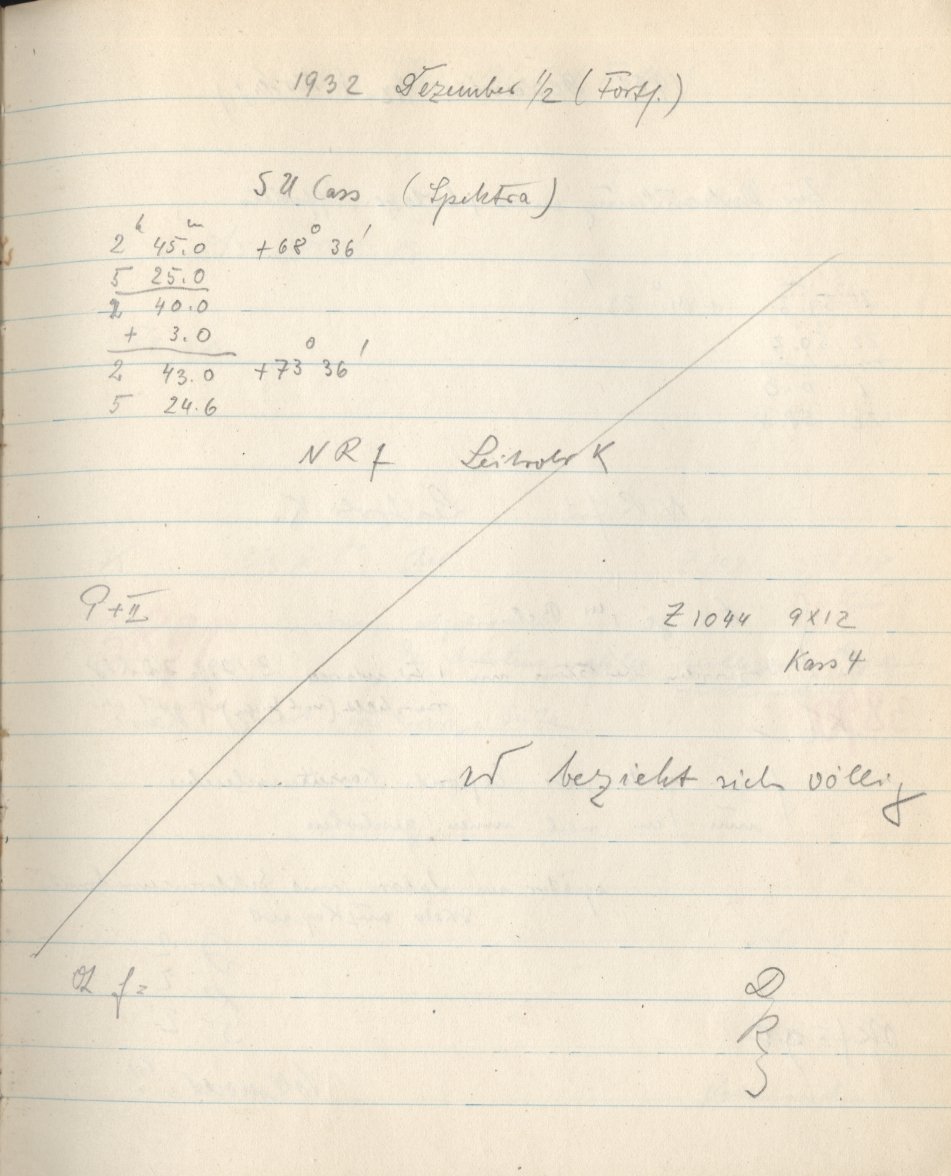 1932 Dezember 1/2 (Fortf.)
SU Cass (Spektra)
2ʰ 45.0ᵐ +68° 36'
5 25.0
2 40.0
+ 3.0
2 43.0 +73° 36'
5 24.6
NR f Leitrohr K
P+II
Z 1044 9x12
Kass 4
bezieht sich völlig
f =
D
R